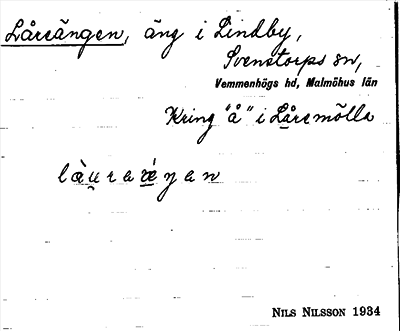 Låreängen, äng i Lindby,
Svenstorps sn,
Vemmenhögs hd, Malmöhus län
Kring "å" i Låremölla
NILS NILSSON 1934